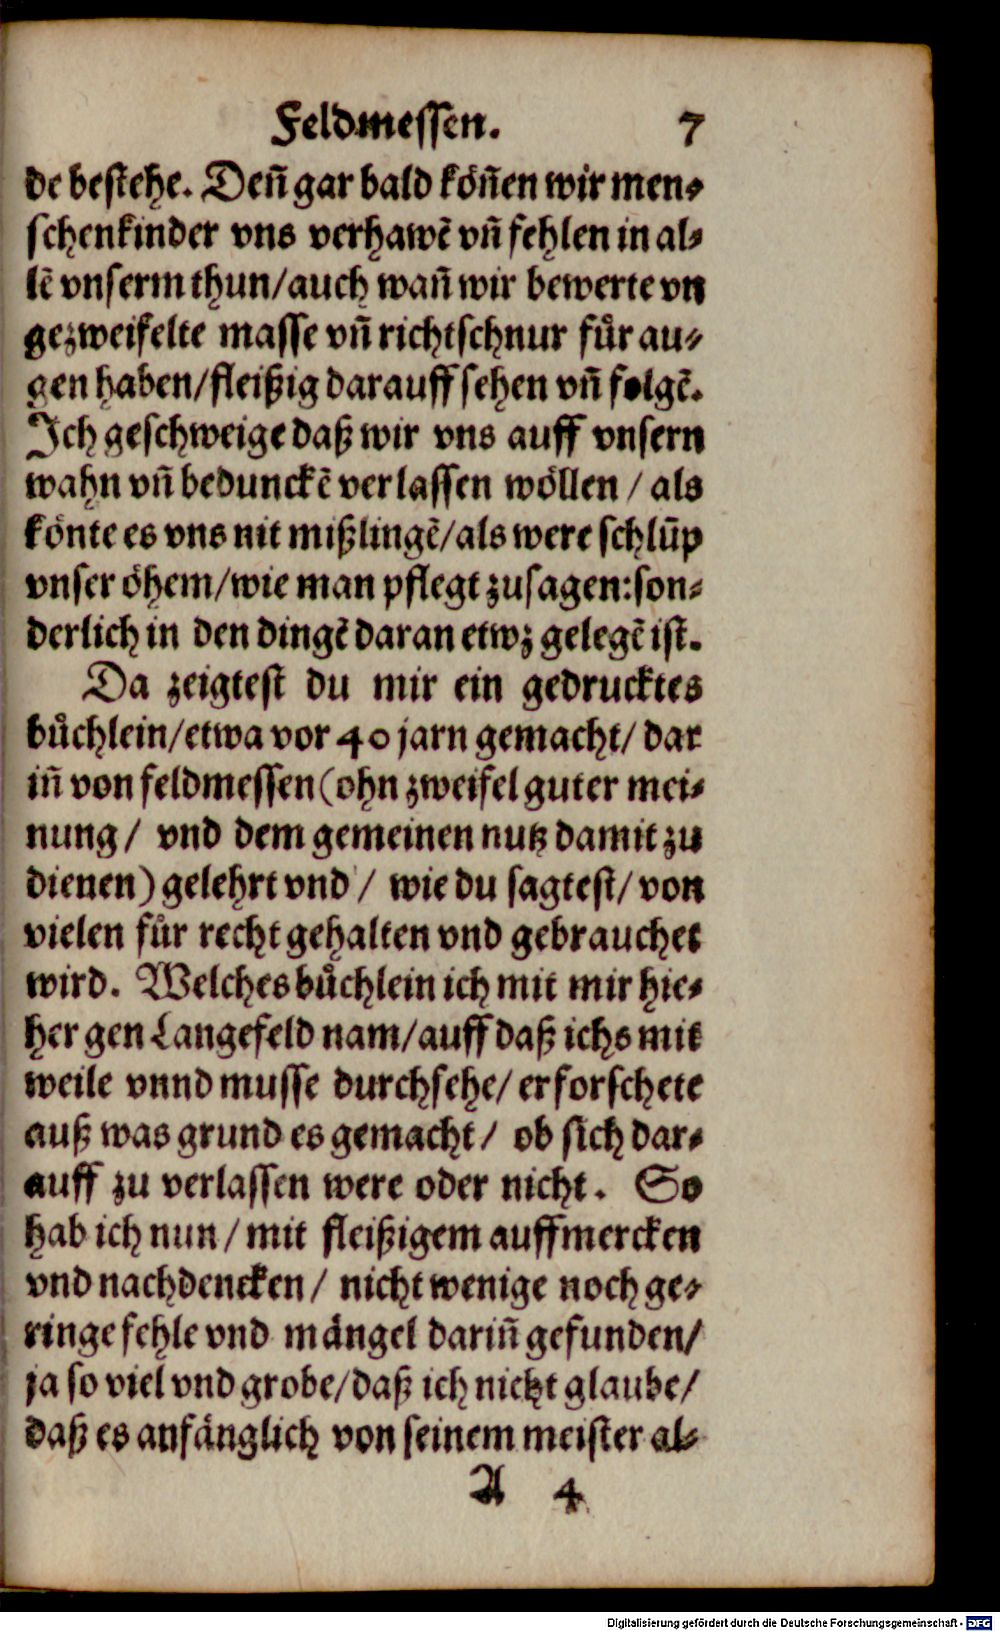 Feldmessen. 7
de bestehe. Deñ gar bald köñen wir men-
schenkinder vns verhawē vñ fehlen in al-
lē vnserm thun/auch wañ wir bewerte vn
gezweifelte masse vñ richtschnur fuͤr au-
gen haben/fleißig darauff sehen vñ folgē.
Ich geschweige daß wir vns auff vnsern
wahn vñ bedunckē verlassen wöllen / als
könte es vns nit mißlingē/als were schlūp
vnser öhem/wie man pflegt zusagen:son-
derlich in den dingē daran etwz gelegē ist.
Da zeigtest du mir ein gedrucktes
buͤchlein/etwa vor 40 jarn gemacht/ dar
iñ von feldmessen (ohn zweifel guter mei-
nung/ vnd dem gemeinen nutz damit zu
dienen) gelehrt vnd / wie du sagtest/ von
vielen fuͤr recht gehalten vnd gebrauchet
wird. Welches buͤchlein ich mit mir hie-
her gen Langefeld nam/auff daß ichs mit
weile vnnd musse durchsehe/ erforschete
auß was grund es gemacht/ ob sich dar-
auff zu verlassen were oder nicht. So
hab ich nun / mit fleißigem auffmercken
vnd nachdencken/ nicht wenige noch ge-
ringe fehle vnd mängel dariñ gefunden/
ja so viel vnd grobe/daß ich nicht glaube/
daß es anfänglich von seinem meister al-
A 4
Digitalisierung gefördert durch die Deutsche Forschungsgemeinschaft - DFG